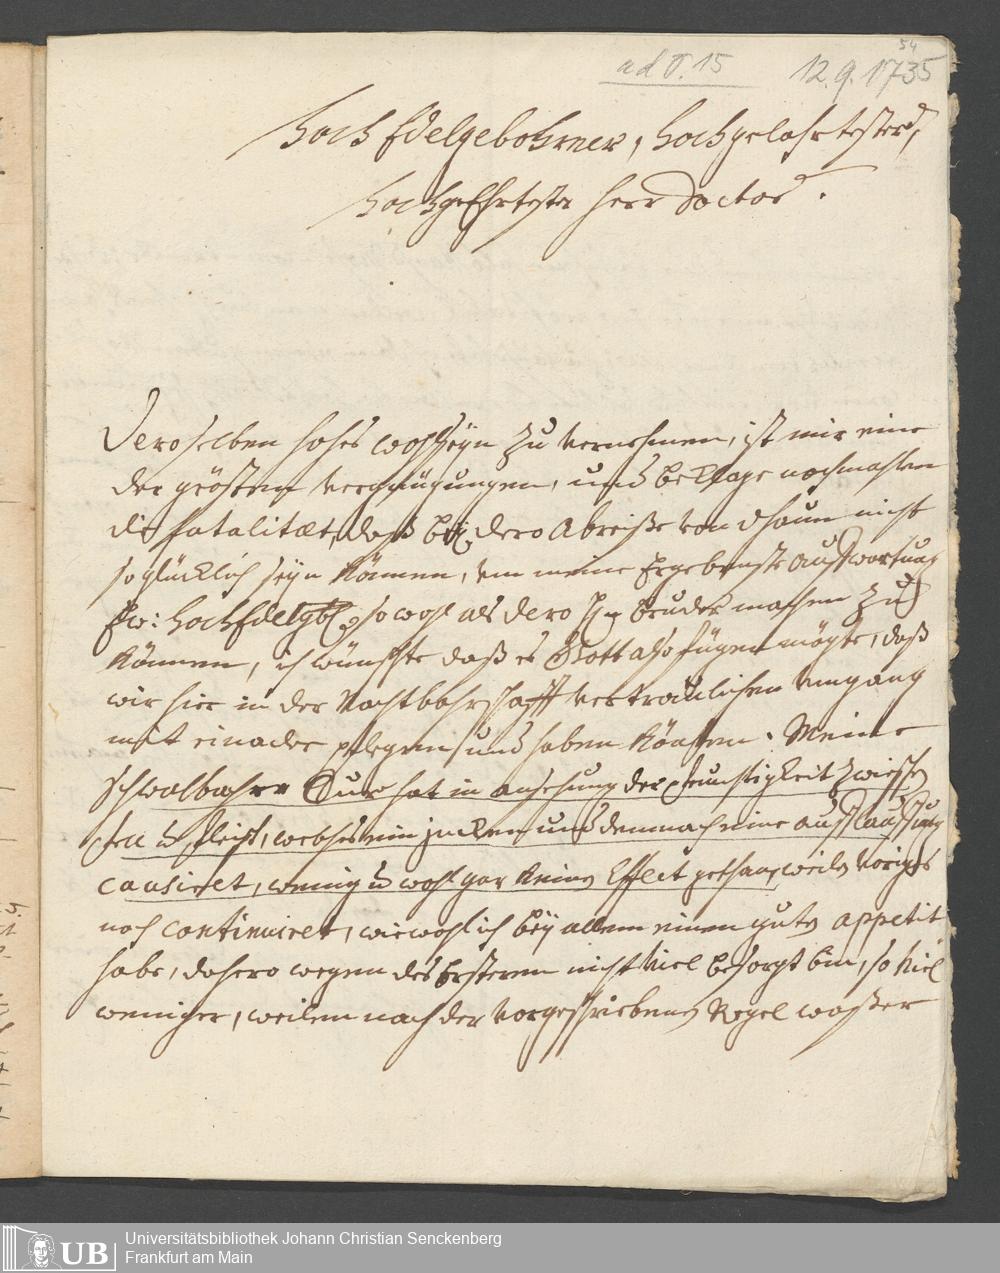 54
ad O. 15 12.9.1735
HochEdelgebohrner, Hochgelahrtester,
HochgeEhrtester Herr Doctor.
Deroselben hohes wohlseyn zu vernehmen, ist mir eine
der grösten vergnügungen, und beklage nochmahlen
die fatalitæt, daß beÿ dero Abreiße von Dhaun nicht
so glücklich seyn können, um meine Ergebenste auffwartung
Ew: HochEdelgb. sowohl als dero H. bruder machen zu
können, ich wünschte daß es Gott also fügen mögte, daß
wir hier in der Nachtbahrschafft vertraulichen umgang
mit einader pflegen und haben könten. Meine
Schwalbacher Cur hat in ansehung der feuchtigkeit zwischen
fell u. fleisch, welches ein jucken und demnach eine
causiret, wenig u. wohl gar keinen Effect gethan, weilen voriges
noch continuiret, wiewohl ich beÿ allem einen guten appetit
habe, dahero wegen des Ersteren nicht viel besorgt bin, so viel
weniger, weilen nach der vorgeschriebenen Regel waßer
UB
Universitätsbibliothek Johann Christian Senckenberg
Frankfurt am Main